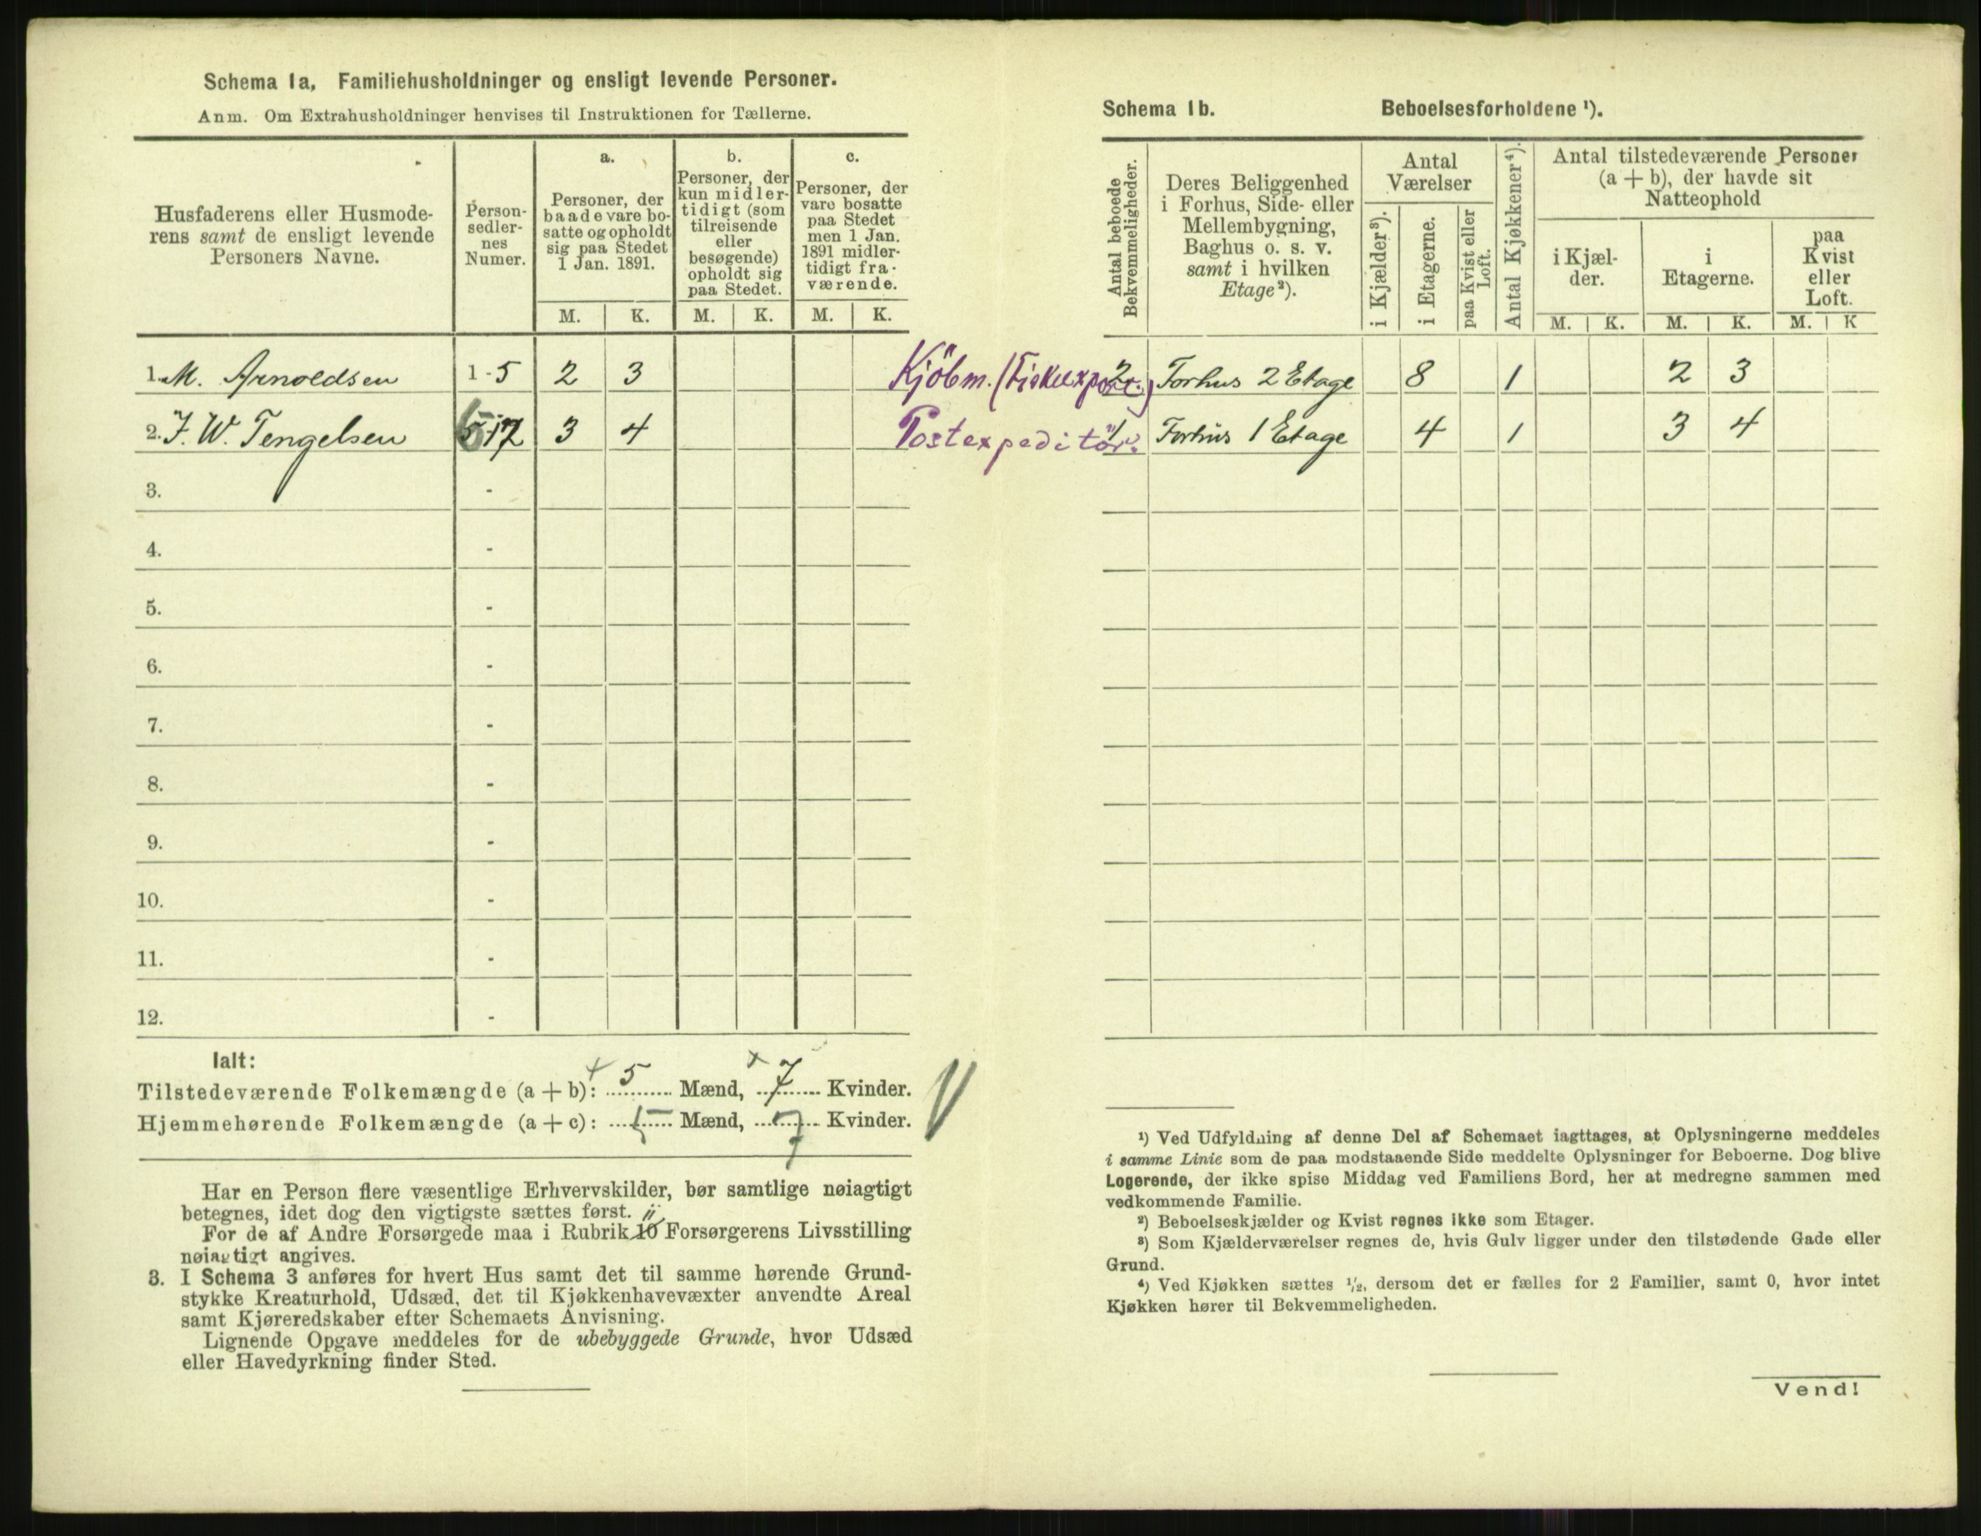 Schema 1a, Familiehusholdninger og ensligt levende Personer.
Anm. Om Extrahusholdninger henvises til Instruktionen for Tællerne.
Husfaderens eller Husmode-
rens samt de ensligt levende
Personers Navne.
Person-
sedler-
nes
Numer.
a.
Personer, der
baade vare bo-
satte og opholdt
sig paa Stedet
1 Jan. 1891.
b.
Personer, der
kun midler-
tidigt (som
tilreisende
eller
besøgende)
opholdt sig
paa Stedet.
c.
Personer, der
vare bosatte
paa Stedet
men 1 Jan.
1891 midler-
tidigt fra-
værende.
M. K. M. K. M. K.
1. M. Arnoldsen 1 - 5 2 3
2. J. W. Tengelsen 3 4
3. -
4. -
5. -
6. -
7. -
8. -
9. -
10. -
11. -
12. -
Ialt:
Tilstedeværende Folkemængde (a + b): 5 Mænd, 7 Kvinder.
Hjemmehørende Folkemængde (a + c): 5 Mænd, 7 Kvinder.
Har en Person flere væsentlige Erhvervskilder, bør samtlige nøiagtigt
betegnes, idet dog den vigtigste sættes først.
For de af Andre Forsørgede maa i Rubrik 10 Forsørgerens Livsstilling
nøiagtigt angives.
3. I Schema 3 anføres for hvert Hus samt det til samme hørende Grund-
stykke Kreaturhold, Udsæd, det til Kjøkkenhavevæxter anvendte Areal
samt Kjøreredskaber efter Schemaets Anvisning.
Lignende Opgave meddeles for de ubebyggede Grunde, hvor Udsæd
eller Havedyrkning finder Sted.
Schema 1b. Beboelsesforholdene ¹).
Antal beboede
Bekvemmeligheder.
Deres Beliggenhed
i Forhus, Side- eller
Mellembygning,
Baghus o. s. v.
samt i hvilken
Etage²).
Antal
Værelser
i Kjælder³).
i Etagerne.
paa Kvist eller
Loft.
Antal Kjøkkener⁴).
Antal tilstedeværende Personer
(a + b), der havde sit
Natteophold
i Kjæl-
der.
i
Etagerne.
paa
Kvist
eller
Loft.
M. K. M. K. M. K
Kjöbm. (Fiskeexport.) 2 Forhus 2 Etage 8 1 2 3
Postexpeditör. 1 Forhus 1 Etage 4 1 3 4
¹) Ved Udfyldning af denne Del af Schemaet iagttages, at Oplysningerne meddeles
i samme Linie som de paa modstaaende Side meddelte Oplysninger for Beboerne. Dog blive
Logerende, der ikke spise Middag ved Familiens Bord, her at medregne sammen med
vedkommende Familie.
²) Beboelseskjælder og Kvist regnes ikke som Etager.
³) Som Kjælderværelser regnes de, hvis Gulv ligger under den tilstødende Gade eller
Grund.
⁴) Ved Kjøkken sættes ½, dersom det er fælles for 2 Familier, samt 0, hvor intet
Kjøkken hører til Bekvemmeligheden.
Vend!